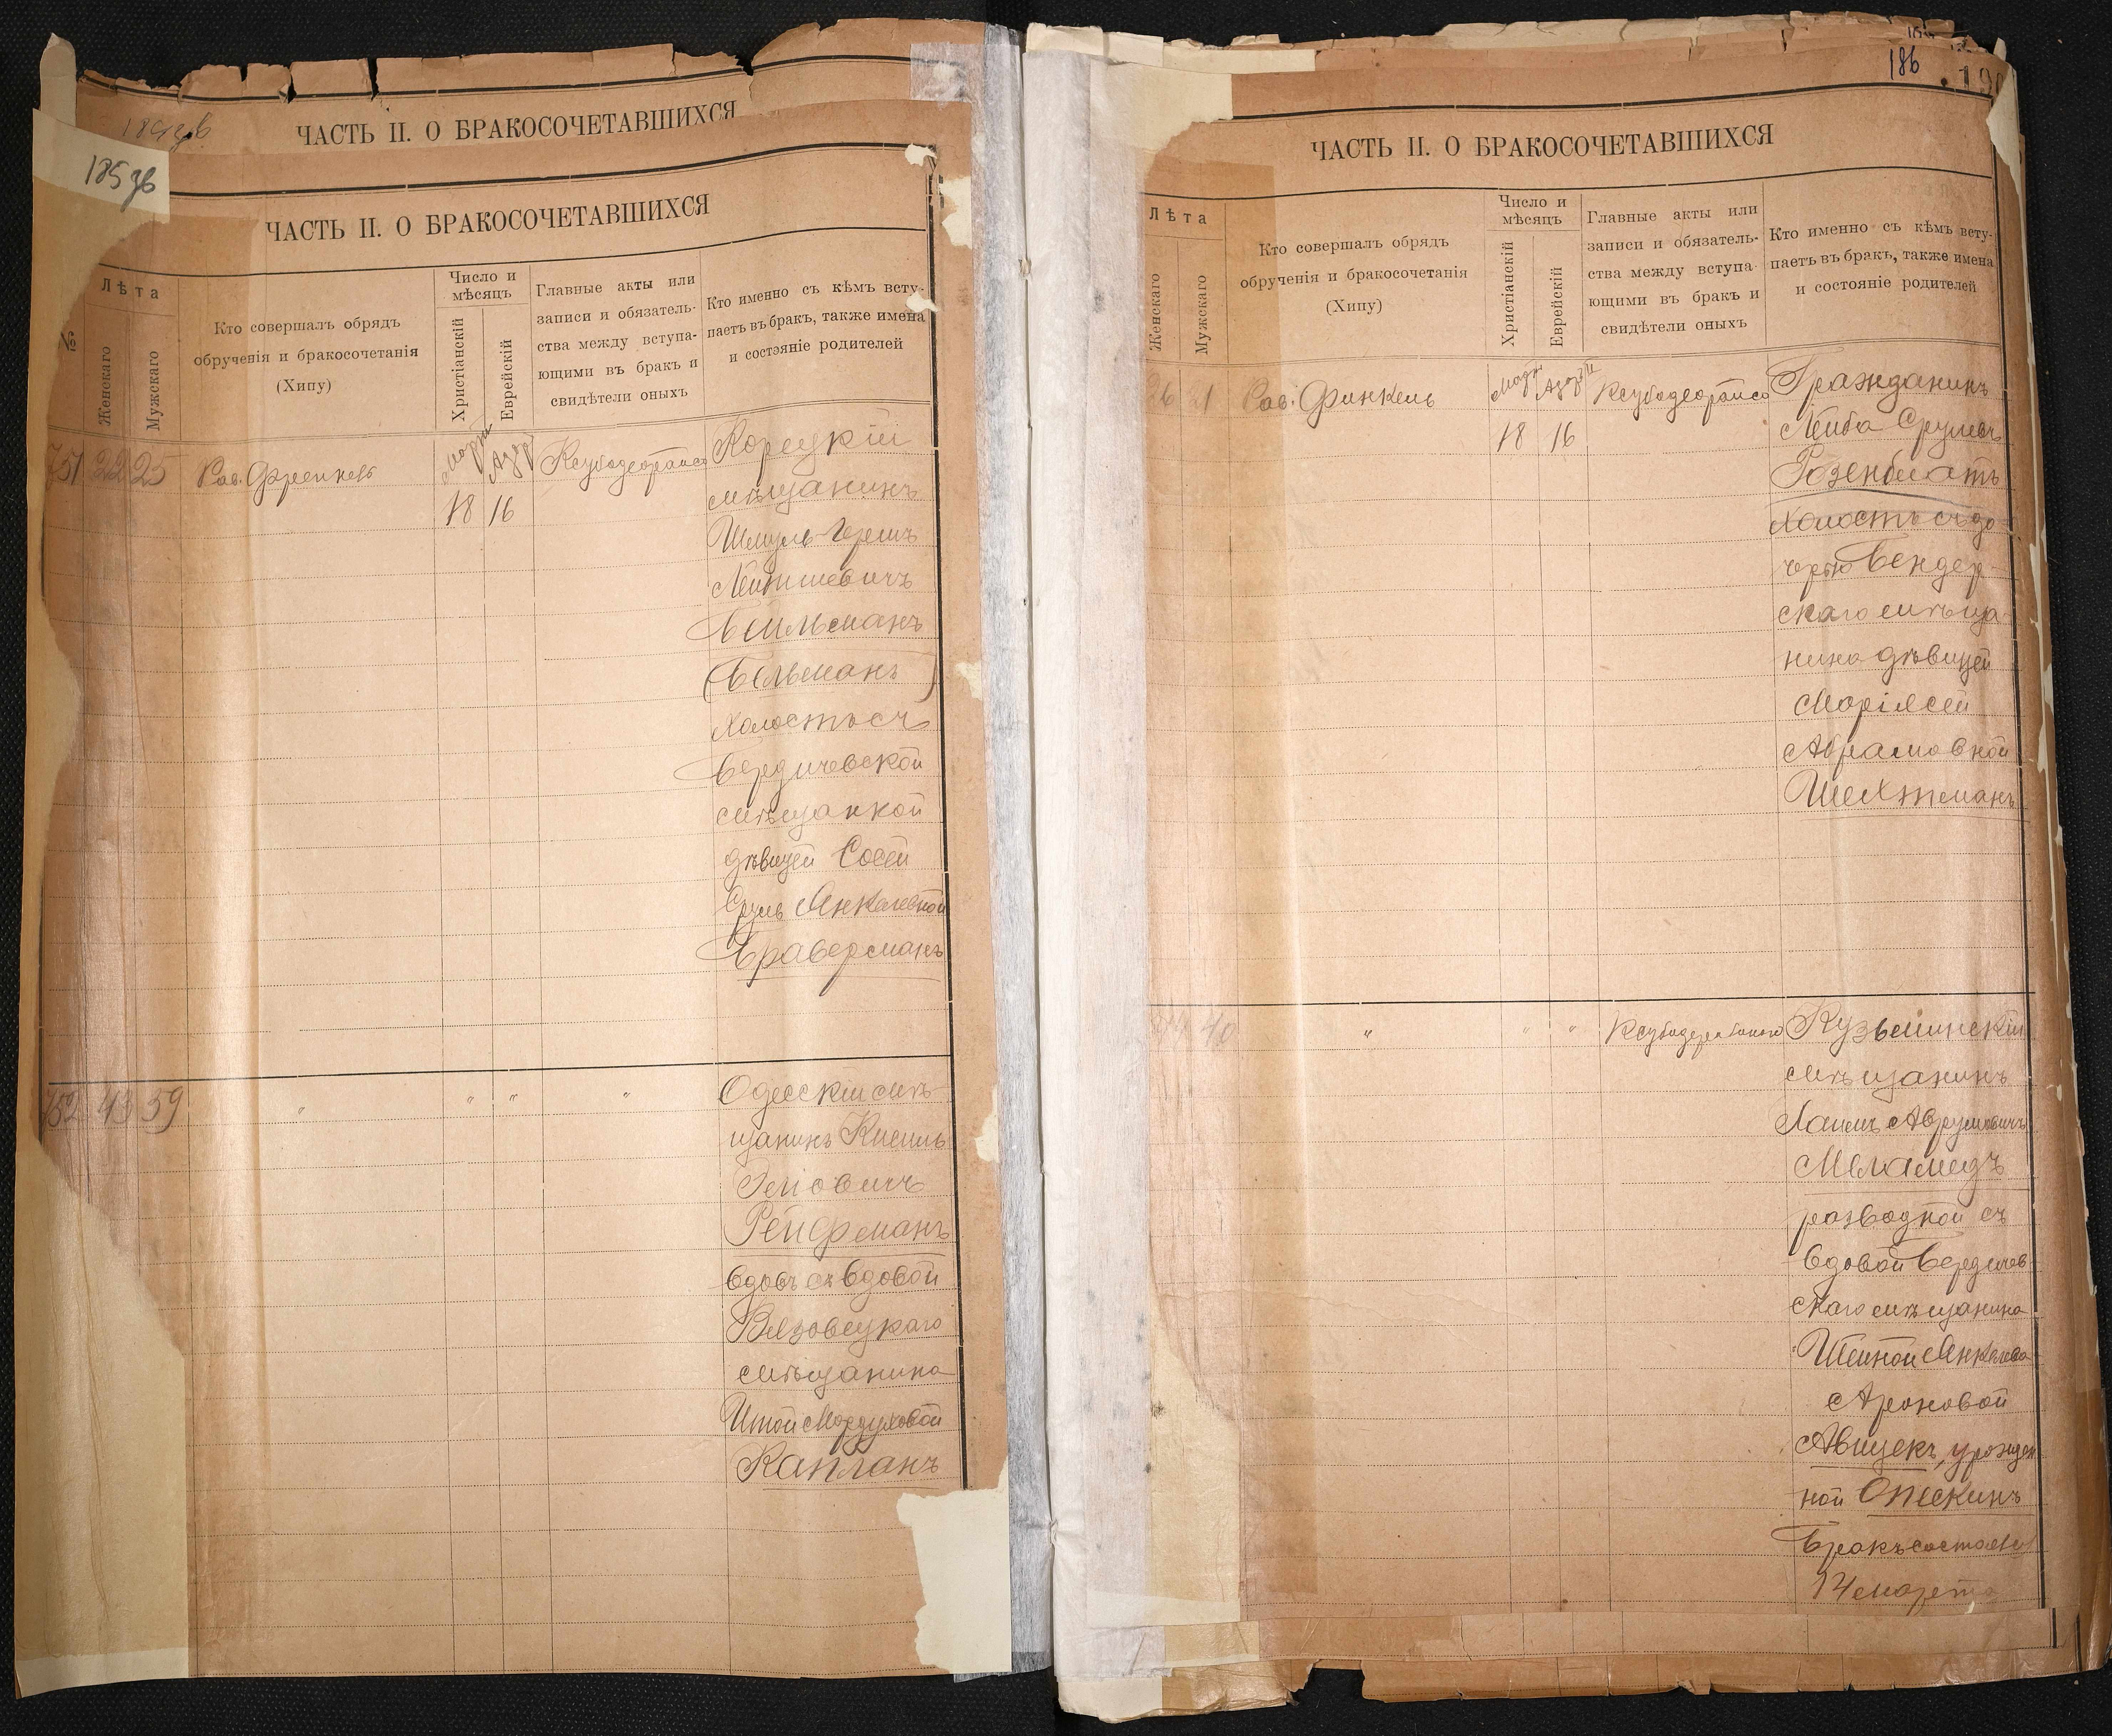 185 зв
ЧАСТЬ II. О БРАКОСОЧЕТАВШИХСЯ
ЧАСТЬ II. О БРАКОСОЧЕТАВШИХСЯ
№
Лѣта
Женскаго
Мужскаго
Кто совершалъ обрядъ
обрученія и бракосочетанія
(Хипу)
Число и
мѣсяцъ
Христіанскій
Еврейскій
Главные акты или
записи и обязатель-
ства между вступа-
ющими въ бракъ и
свидѣтели оныхъ
Кто именно съ кѣмъ всту-
паетъ въ бракъ, также имена
и состояніе родителей
751 22 25 Рав. Френкель
Мартъ
18 16
Корецкій
мѣщанинъ
Шмуль-Гершъ
Бейльманъ
(Бельманъ)
холостъ съ
Бердичевской
мѣщанкой
дѣвицей Сосей
Сруль Янкелевной
Браверманъ
752 43 59 " " " "
Одесскій мѣ-
щанинъ Кисиль
Рейфманъ
вдовъ съ вдовой
мѣщанина
Итой Мордуховой
Капланъ
186
ЧАСТЬ II. О БРАКОСОЧЕТАВШИХСЯ
Лѣта
Женскаго
Мужскаго
Кто совершалъ обрядъ
обрученія и бракосочетанія
(Хипу)
Число и
мѣсяцъ
Христіанскій
Еврейскій
Главные акты или
записи и обязатель-
ства между вступа-
ющими въ бракъ и
свидѣтели оныхъ
Кто именно съ кѣмъ всту-
паетъ въ бракъ, также имена
и состояніе родителей
26 21 Рав. Финкель
18 16
Гражданинъ
Лейба Срулевъ
Розенблатъ
холостъ съ до-
черью Бендер-
скаго мѣща-
нина дѣвицей
Маріясей
Абрамовной
Шехтманъ
40 " " "
Кузьминскій
мѣщанинъ
Мелamедъ
разводной съ
вдовой Бердичев-
скаго мѣщанина
Шейной Янкелева
Ароновой
Авицекъ, урожден-
ной Опескинъ
Бракъ состоялся
14 марта